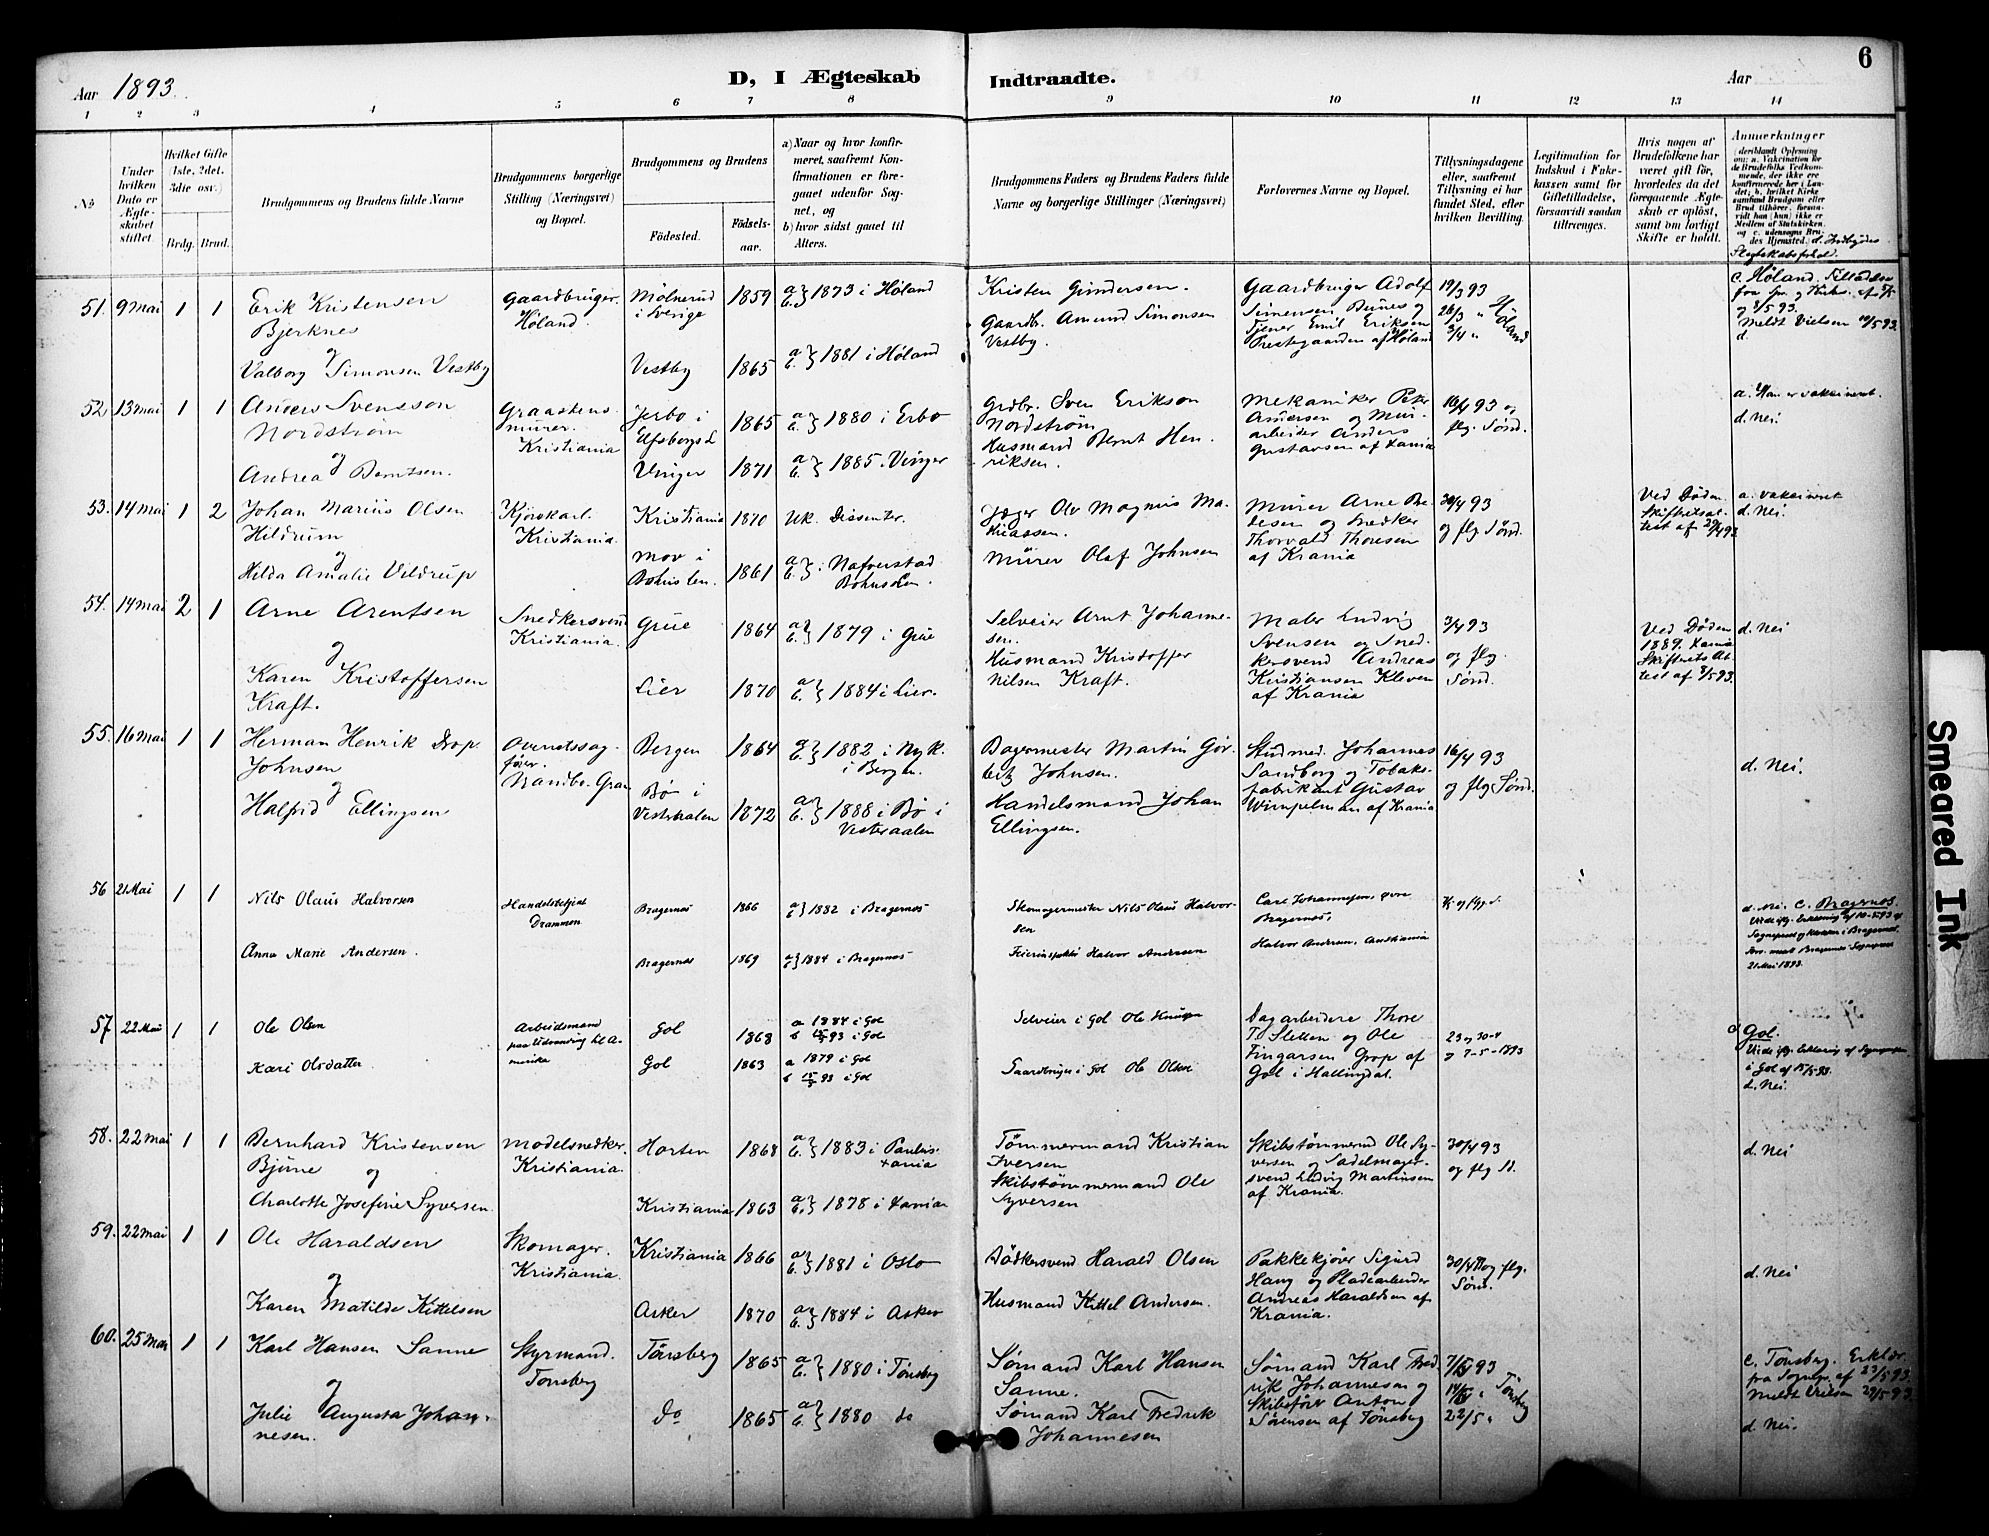 6
Aar 1893.
D, I Ægteskab
Indtraadte.
Aar
1 2 3 4 5 6 7 8 9 10 11 12 13 14
No
Under hvilken Dato er Ægteskabet stiftet.
Hvilket Gifte (1ste, 2det, 3die osv.)
Brdg. Brud.
Brudgommens og Brudens fulde Navne
Brudgommens borgerlige Stilling (Næringsvei) og Bopæl.
Brudgommens og Brudens
Fødested.
Fødselsaar.
a) Naar og hvor konfirmeret, saafremt Konfirmationen er foregaaet udenfor Sognet, og
b) hvor sidst gaaet til Alters.
Brudgommens Faders og Brudens Faders fulde Navne og borgerlige Stillinger (Næringsvei)
Forlovernes Navne og Bopæl.
Tillysningsdagene eller, saafremt Tillysning ei har fundet Sted, efter hvilken Bevilling.
Legitimation for Indskud i Enkekassen samt for Giftetilladelse, forsaavidt saadan tiltrænges.
Hvis nogen af Brudefolkene har været gift før, hvorledes da det foregaaende Ægteskab er opløst, samt om lovligt Skifte er holdt.
Anmerkninger
51. 9 Mai 1 1 Erik Kristensen Bjerknes
og
Valborg Simonsen Vestby
Gaardbruger. Høland.
Mølnerud i Sverige 1859 a b } 1873 i Høland
Vestby 1865 a b } 1881 i Høland
Kristen Gundersen.
Gaardbr. Amund Simonsen Vestby.
Gaardbruger Adolf Simensen Bunes og Tjener Emil Eriksen Prestegaarden af Høland
19/3 93
26/3 "
3/4 "
Høland
c. Høland.
Meldt Vielsen 10/5 93.
d.
52. 13 Mai 1 1 Anders Svensson Nordstrøm
og
Andrea Berntsen.
Graastensmurer. Kristiania
Jerbo i Elfsborgs L 1865 a b } 1880 i Erbo
Vinger 1871 a b } 1885 i Vinger
Grdbr. Sven Erikson Nordstrøm
Husmand Bernt Henriksen.
Mekaniker Peter Andersen og Murarbeider Anders Gustavsen af Xania
16/4 93 og flg. Sønd.
a. Han er vakcineret.
d. Nei.
53. 14 Mai 1 2 Johan Marius Olsen Hildrum
og
Hilda Amalie Vildrup
Kjørekarl. Kristiania.
Kristiania 1870 Uk. Dissenter.
Mov i Bohuslen. 1861 a b } i Nafverstad Bohuslen.
Jæger Ole Magnus Mathiassen.
Murer Olaf Johnsen
Murer Arne Pedesen og Snedker Thorvald Thoresen af Krania
30/4 93 og flg Sønd.
Ved Døden. Skifteretsattest af 29/4 93
a. vakcineret
d. Nei.
54. 14 Mai 2 1 Arne Arentsen
og
Karen Kristoffersen Kraft.
Snedkersvend Kristiania.
Grue 1864 a b } 1879 i Grue
Lier 1870 a b } 1884 i Lier.
Selveier Arnt Johannesen.
Husmand Kristoffer Nilsen Kraft.
Maler Ludvig Svensen og Snedkersvend Andreas Kristiansen Kleven af Krania
og flg. Sønd.
Ved Døden 1889. Xania Skifterets Attest af 8/5 93.
d. Nei
55. 16 Mai 1 1 Herman Henrik Johnsen
og
Halfrid Ellingsen
Overretssagfører. Randbo. Gran
Bergen 1864 a b } 1882 i Nyk. i Bergen.
Bø i Vesteraalen 1872 a b } 1888 i Bø i Vesteraalen
Bagermester Martin Gørbitz Johnsen.
Handelsmand Johan Ellingsen.
Stud med. Johannes Sandborg og Tobaksfabrikant Gustav Wimpelman af Krania
16/4 93 og flg Sønd.
d. Nei.
56 21 Mai 1 1 Nils Olaus Halvorsen
Anna Marie Andersen.
Handelsbetjent Drammen
Bragernes 1866 a b } 1882 i Bragernes
Bragernes 1869 a b } 1884 i Bragernes
Skomagermester Nils Olaus Halvorsen
Halvor Andersen
Carl Johannesen, øvre Bragernes,
Halvor Andersen,
d. Nei. c. Bragernes.
21 Mai 1893.
57 22 Mai 1 1 Ole Olsen
Kari Olsdatter
Arbeidsmand paa Udvandring til Amerika
Gol 1868 a 1884 i Gol
b 15/5 93 i Gol
Gol 1863 a 1879 i Gol
b 15/5 93 i Gol
Selveier i Gol Ole Knudsen
Gaardbruger i Gol Ole Olsen
Dagarbeidere Thore T. Sletten og Ole Fingarsen Grop af Gol i Hallingdal.
23 og 30-4 og 7-5-1893
c Gol.
i Gol af 15/5 93.
d. Nei.
58. 22 Mai 1 1 Bernhard Kristensen Bjune
og
Charlotte Josefine Syversen.
Modelsnedker. Kristiania.
Horten 1868 a b } 1883 i Paulus Xania
Kristiania 1863 a b } 1878 i Xania
Tømmermand Kristian Iversen
Skibstømmermand Ole Syversen
Skibstømmermd Ole Syversen og Sadelmagersvend Ludvig Martinsen af Krania.
30/4 93 og flg S.
d. Nei
59. 22 Mai 1 1 Ole Haraldsen
og
Karen Matilde Kittelsen
Skomager. Kristiania.
Kristiania 1866 a b } 1881 i Oslo
Asker 1870 a b } 1884 i Asker
Bødkersvend Harald Olsen
Husmand Kittel Andersen.
Pakkekjører Sigurd Haug og Pladearbeider Andreas Haraldsen af Krania.
30/4 og flg. Sønd.
d. Nei
60. 25 Mai 1 1 Karl Hansen Sanne
og
Julie Augusta Johannesen.
Styrmand. Tønsberg
Tønsberg 1865 a b } 1880 i Tønsberg
do 1865 a b } 1880 do
Sømand Karl Hansen Sanne.
Sømand Karl Fredrik Johannesen
Sømand Karl Fredrik Johannesen og Skibsfører Anton Sørensen af Tønsberg
7/5 93
14/5 "
22/5 "
Tønsberg
c. Tønsberg. Erklær. fra Sognepr. af 23/5 93.
Meldt Vielsen 29/5 93
d. Nei.
Smeared Ink